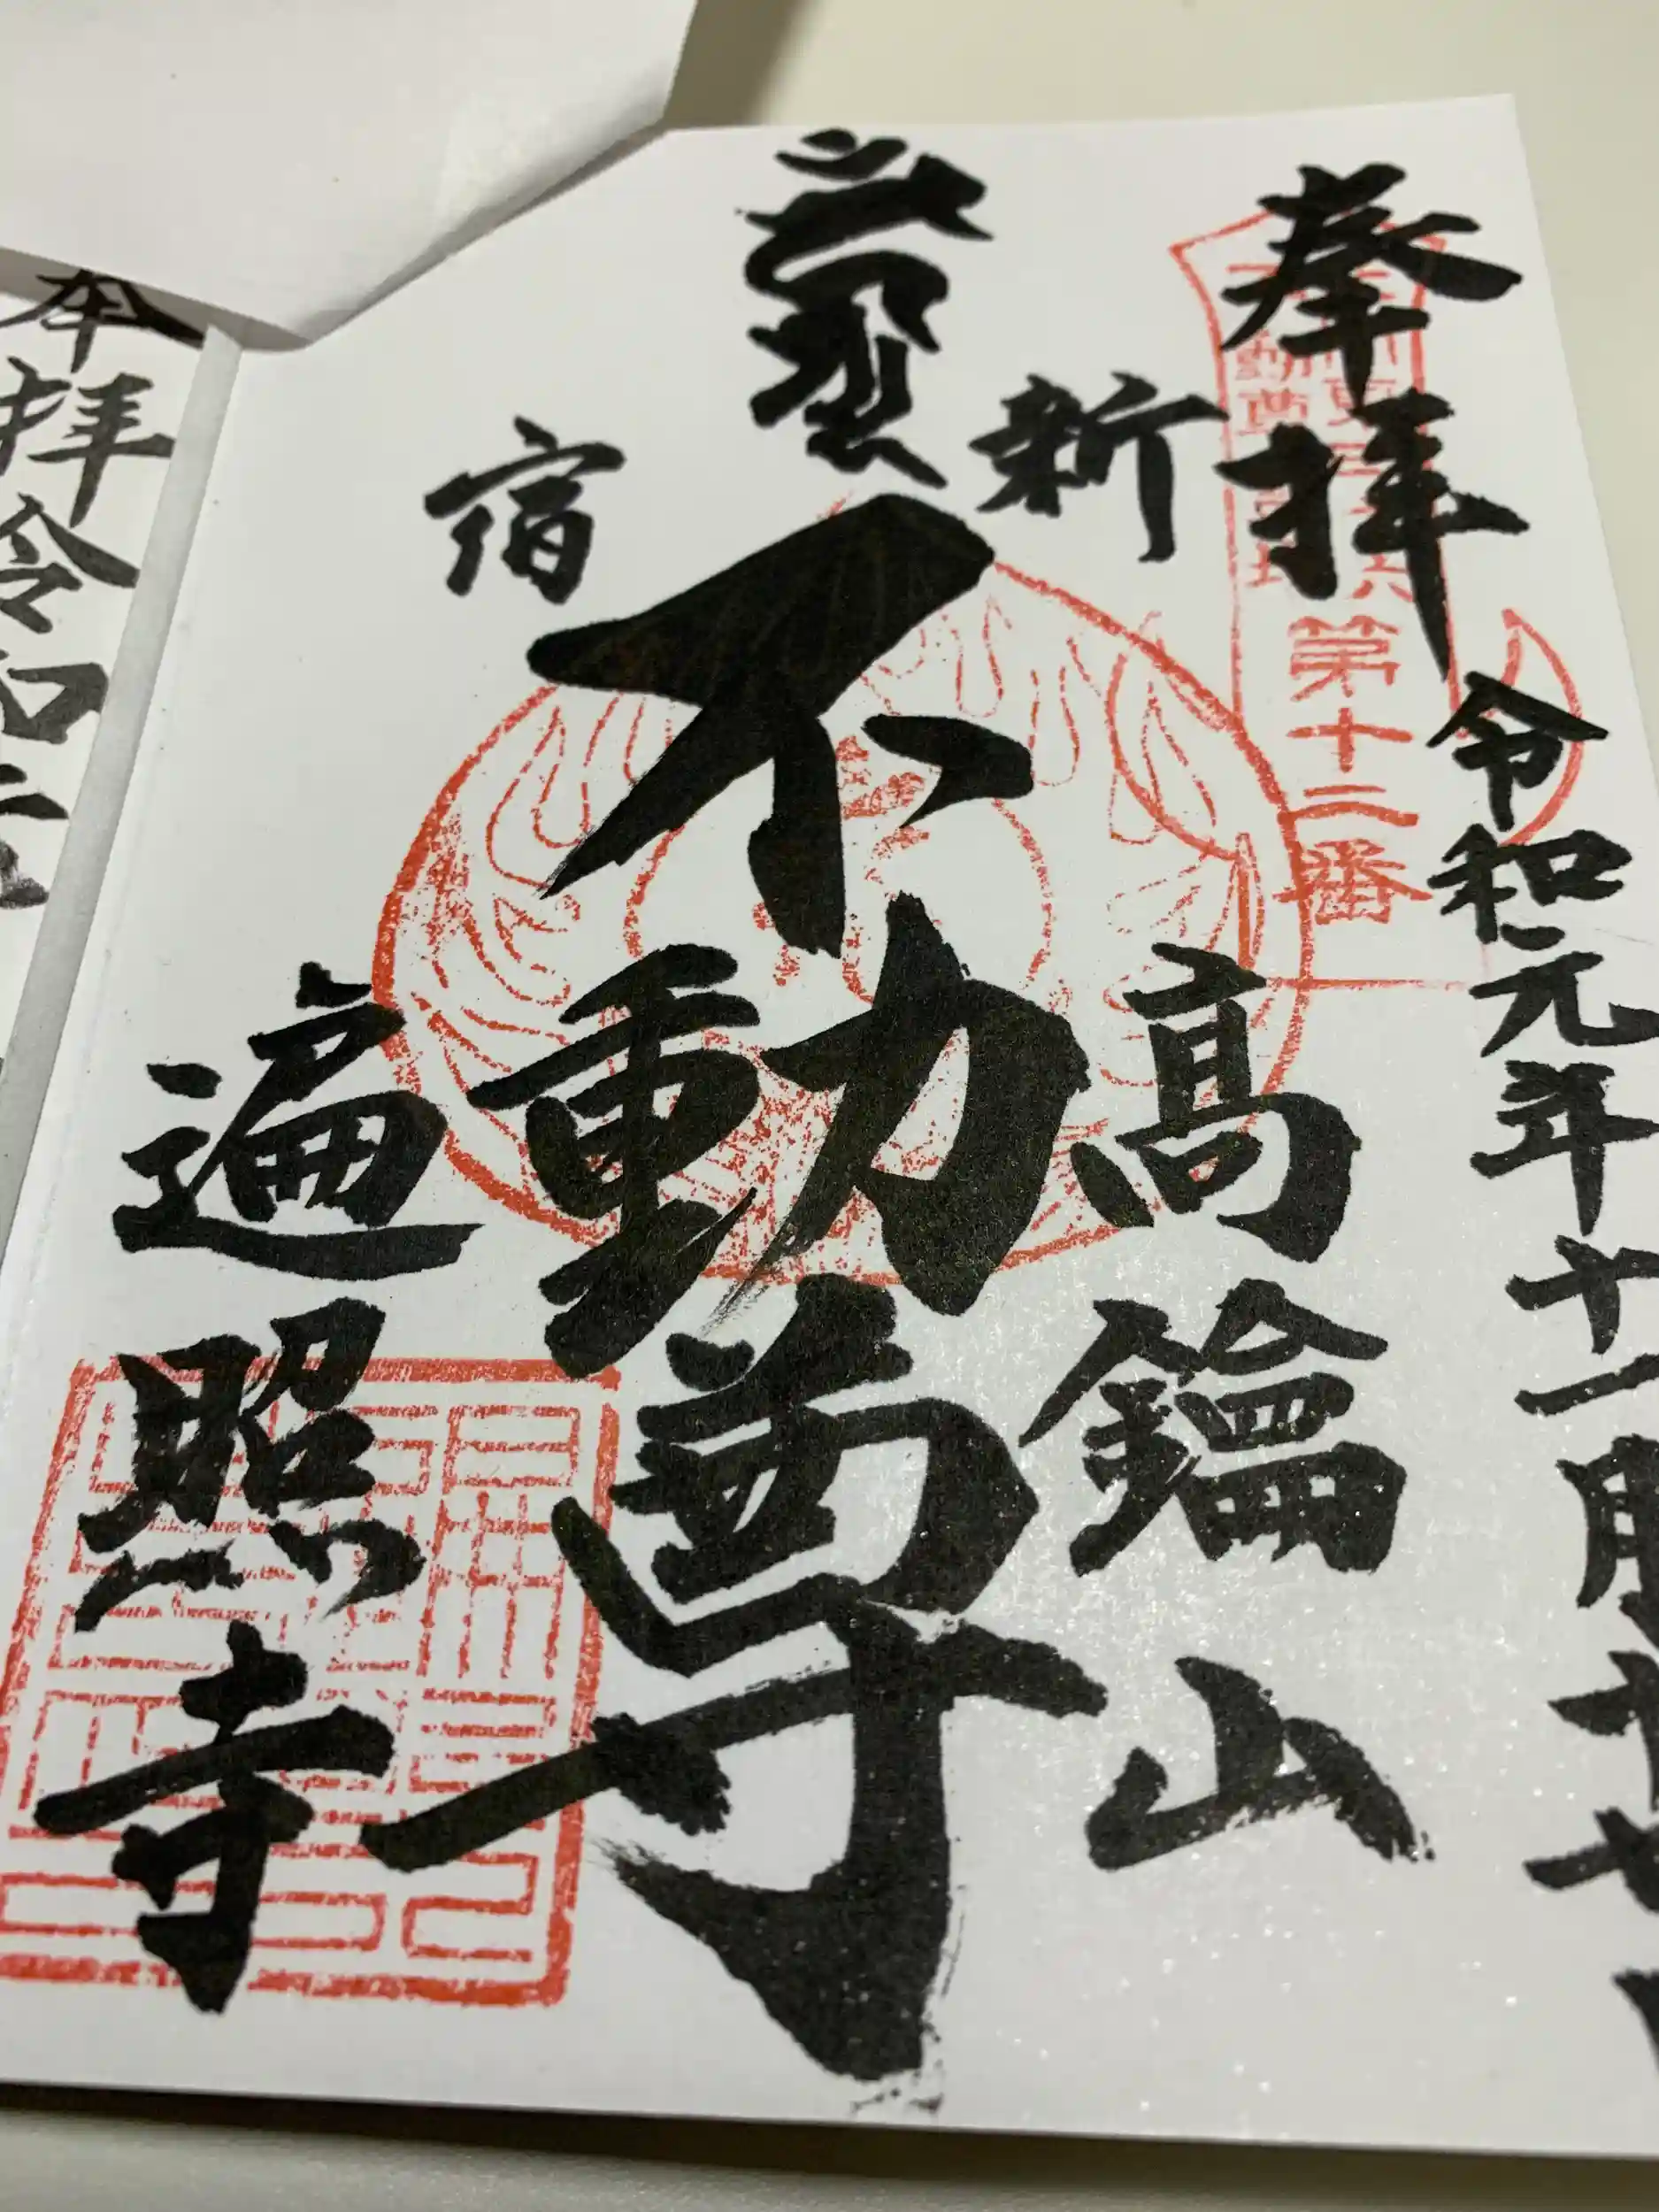 奉拝
令和元年十一月十七
第十二番
新
宿
高鑰山
不動尊
遍照寺
本拝令和元